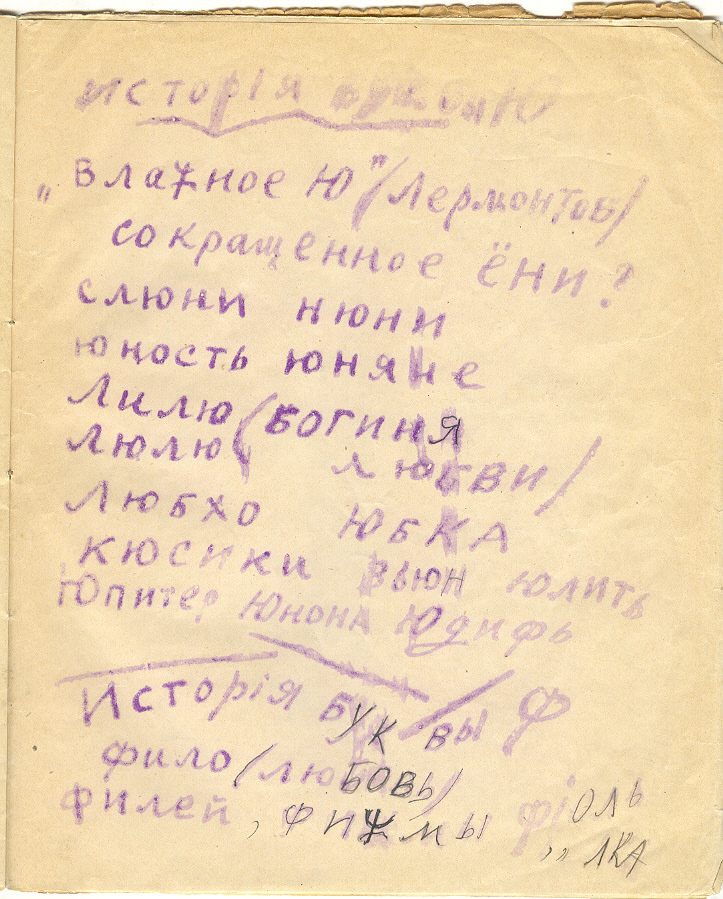 исторія буквы Ю
„Влажное Ю" /Лермонтов/
сокращенное ёни?
слюни нюни
юность юняне
Лилю (богиня
люлю любви/
любхо юбка
кюсики вьюн юлить
Юпитер Юнона Юдифь
Исторія буквы Ф
фило (любовь)
филей, фижмы фіоль
„ лка